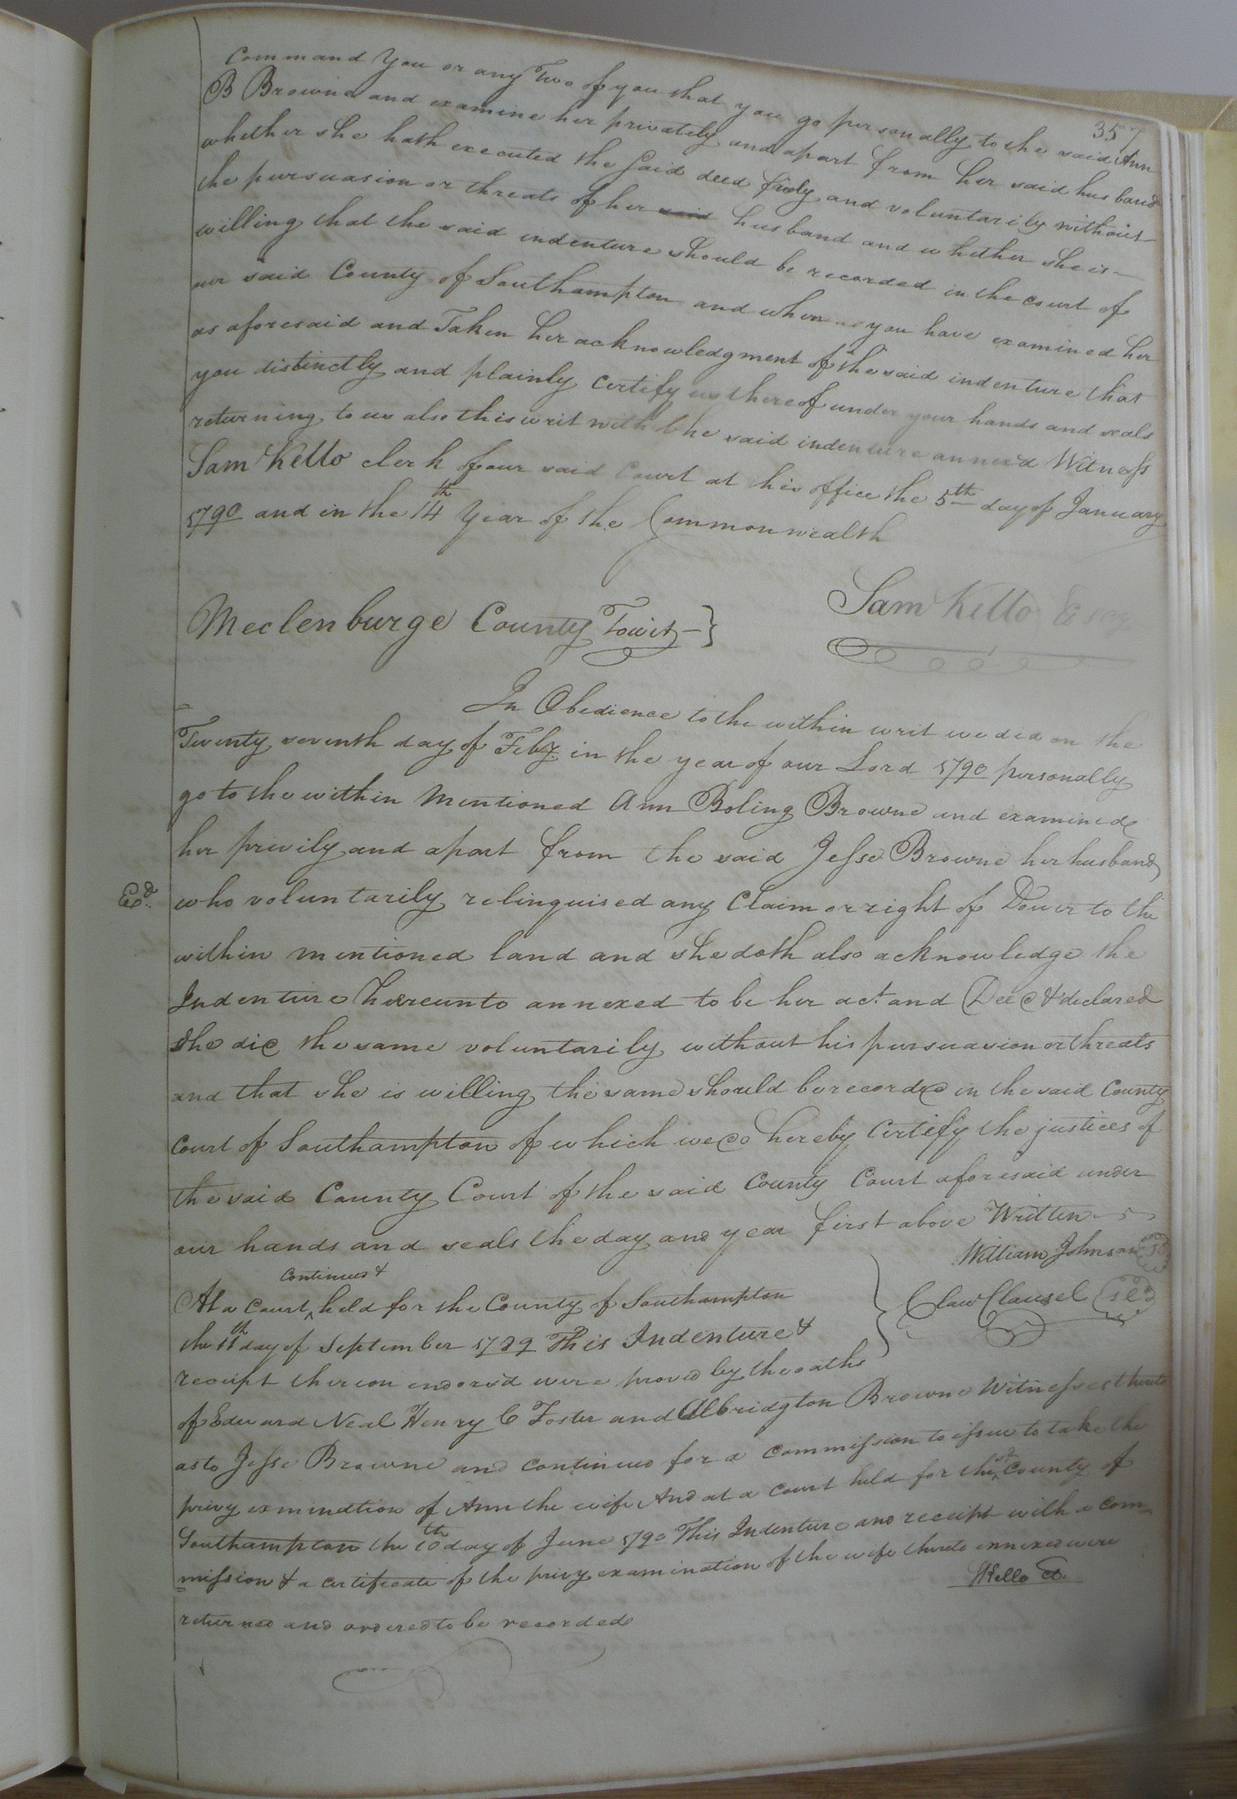 357
Command You or any Two of you that you go personally to the said Ann
B Browne and examine her privately and apart from her said husband
whether she hath executed the said deed freely and voluntarily without
the persuasion or threats of her said husband and whether she is
willing that the said indenture should be recorded in the court of
our said County of Southampton and when you have examined her
as aforesaid and Taken her acknowledgment of the said indenture that
you distinctly and plainly certify us thereof under your hands and seals
returning to us also this writ with the said indenture annexd Witness
Sam Kello clerk of our said court at his office the 5th day of January
1790 and in the 14th Year of the Commonwealth
Sam Kello
Meclenburge County Towit
In Obedience to the within writ we did on the
Twenty seventh day of Feby in the year of our Lord 1790 personally
go to the within Mentioned Ann Boling Browne and examined
her privily and apart from the said Jesse Browne her husband
Exd. who voluntarily relinquised any Claim or right of Dower to the
within mentioned land and she doth also acknowledge the
Indenture hereunto annexed to be her act and Deed & declared
she did the same voluntarily without his persuasion or threats
and that she is willing the same should be recorded in the said County
Court of Southampton of which we do hereby Certify the justices of
the said County Court of the said County Court aforesaid under
our hands and seals the day and year first above Written
William Johnson
Claw Clausel Sed
Continued &
At a Court held for the County of Southampton
the 11th day of September 1789 This Indenture &
receipt thereon endorsd were proved by the oaths
of Edward Neal Henry C Foster and Albridgton Browne Witnesses thereto
as to Jesse Browne and continued for a Commission to issue to take the
privy exmination of Ann the wife And at a Court held for the sd County of
Southampton the 10th day of June 1790 This Indenture and receipt with a com
mission & a certificate of the privy examination of the wife thereto annexed were
returned and ordered to be recorded